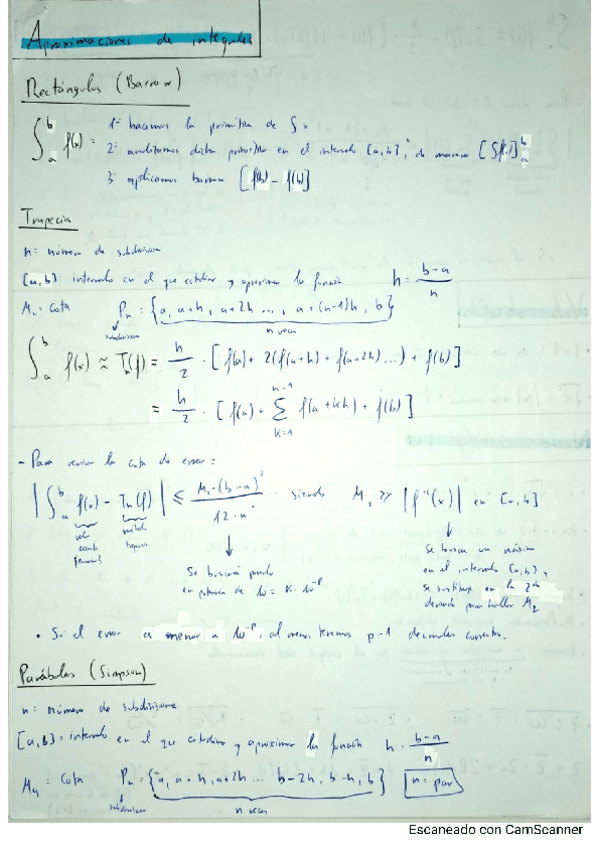 Aproximaciones de integrales
Rectángulos (Barrow)
∫ₐᵇ f(x) =
1º hacemos la primitiva de f x
2º analizamos dicha primitiva en el intervalo [a,b], de manera [Sf(x)]ₐᵇ
3º aplicamos barrow [f(b) - f(b)]
Trapecio
n = número de subdivisiones
[a,b] = intervalo en el que estudiar y aproximar la función h = b-a / n
M₂ = Cota Pn : {a, a+h, a+2h ..., a+(n-1)h, b}
subdivisiones n veces
∫ₐᵇ f(x) ≈ Tn(f) = h/2 · [f(a) + 2(f(a+h) + f(a+2h)...) + f(b)]
= h/2 · [f(a) + Σ f(a+kh) + f(b)]
n-1
k=1
- Para la cota de error =
|∫ₐᵇ f(x) - Tn(f)| ≤ M₂·(b-a)² / 12·n² siendo M₂ ≥ |f''(x)| en [a,b]
método
trapecio
Se busca un máximo
en el intervalo [a,b],
se sustituye en la 2ª
derivada para hallar M₂
Se buscará
en potencia de 10 = K·10⁻ᴾ
• Si el error es menor a 10⁻ᴾ, al menos tenemos p-1 decimales correctos.
Parábolas (Simpson)
n = número de subdivisiones
[a,b] = intervalo en el que estudiar y aproximar la función h = b-a / n
M₄ : Cota Pn : {a, a+h, a+2h ... b-2h, b-h, b} n = par
subdivisiones n veces
Escaneado con CamScanner